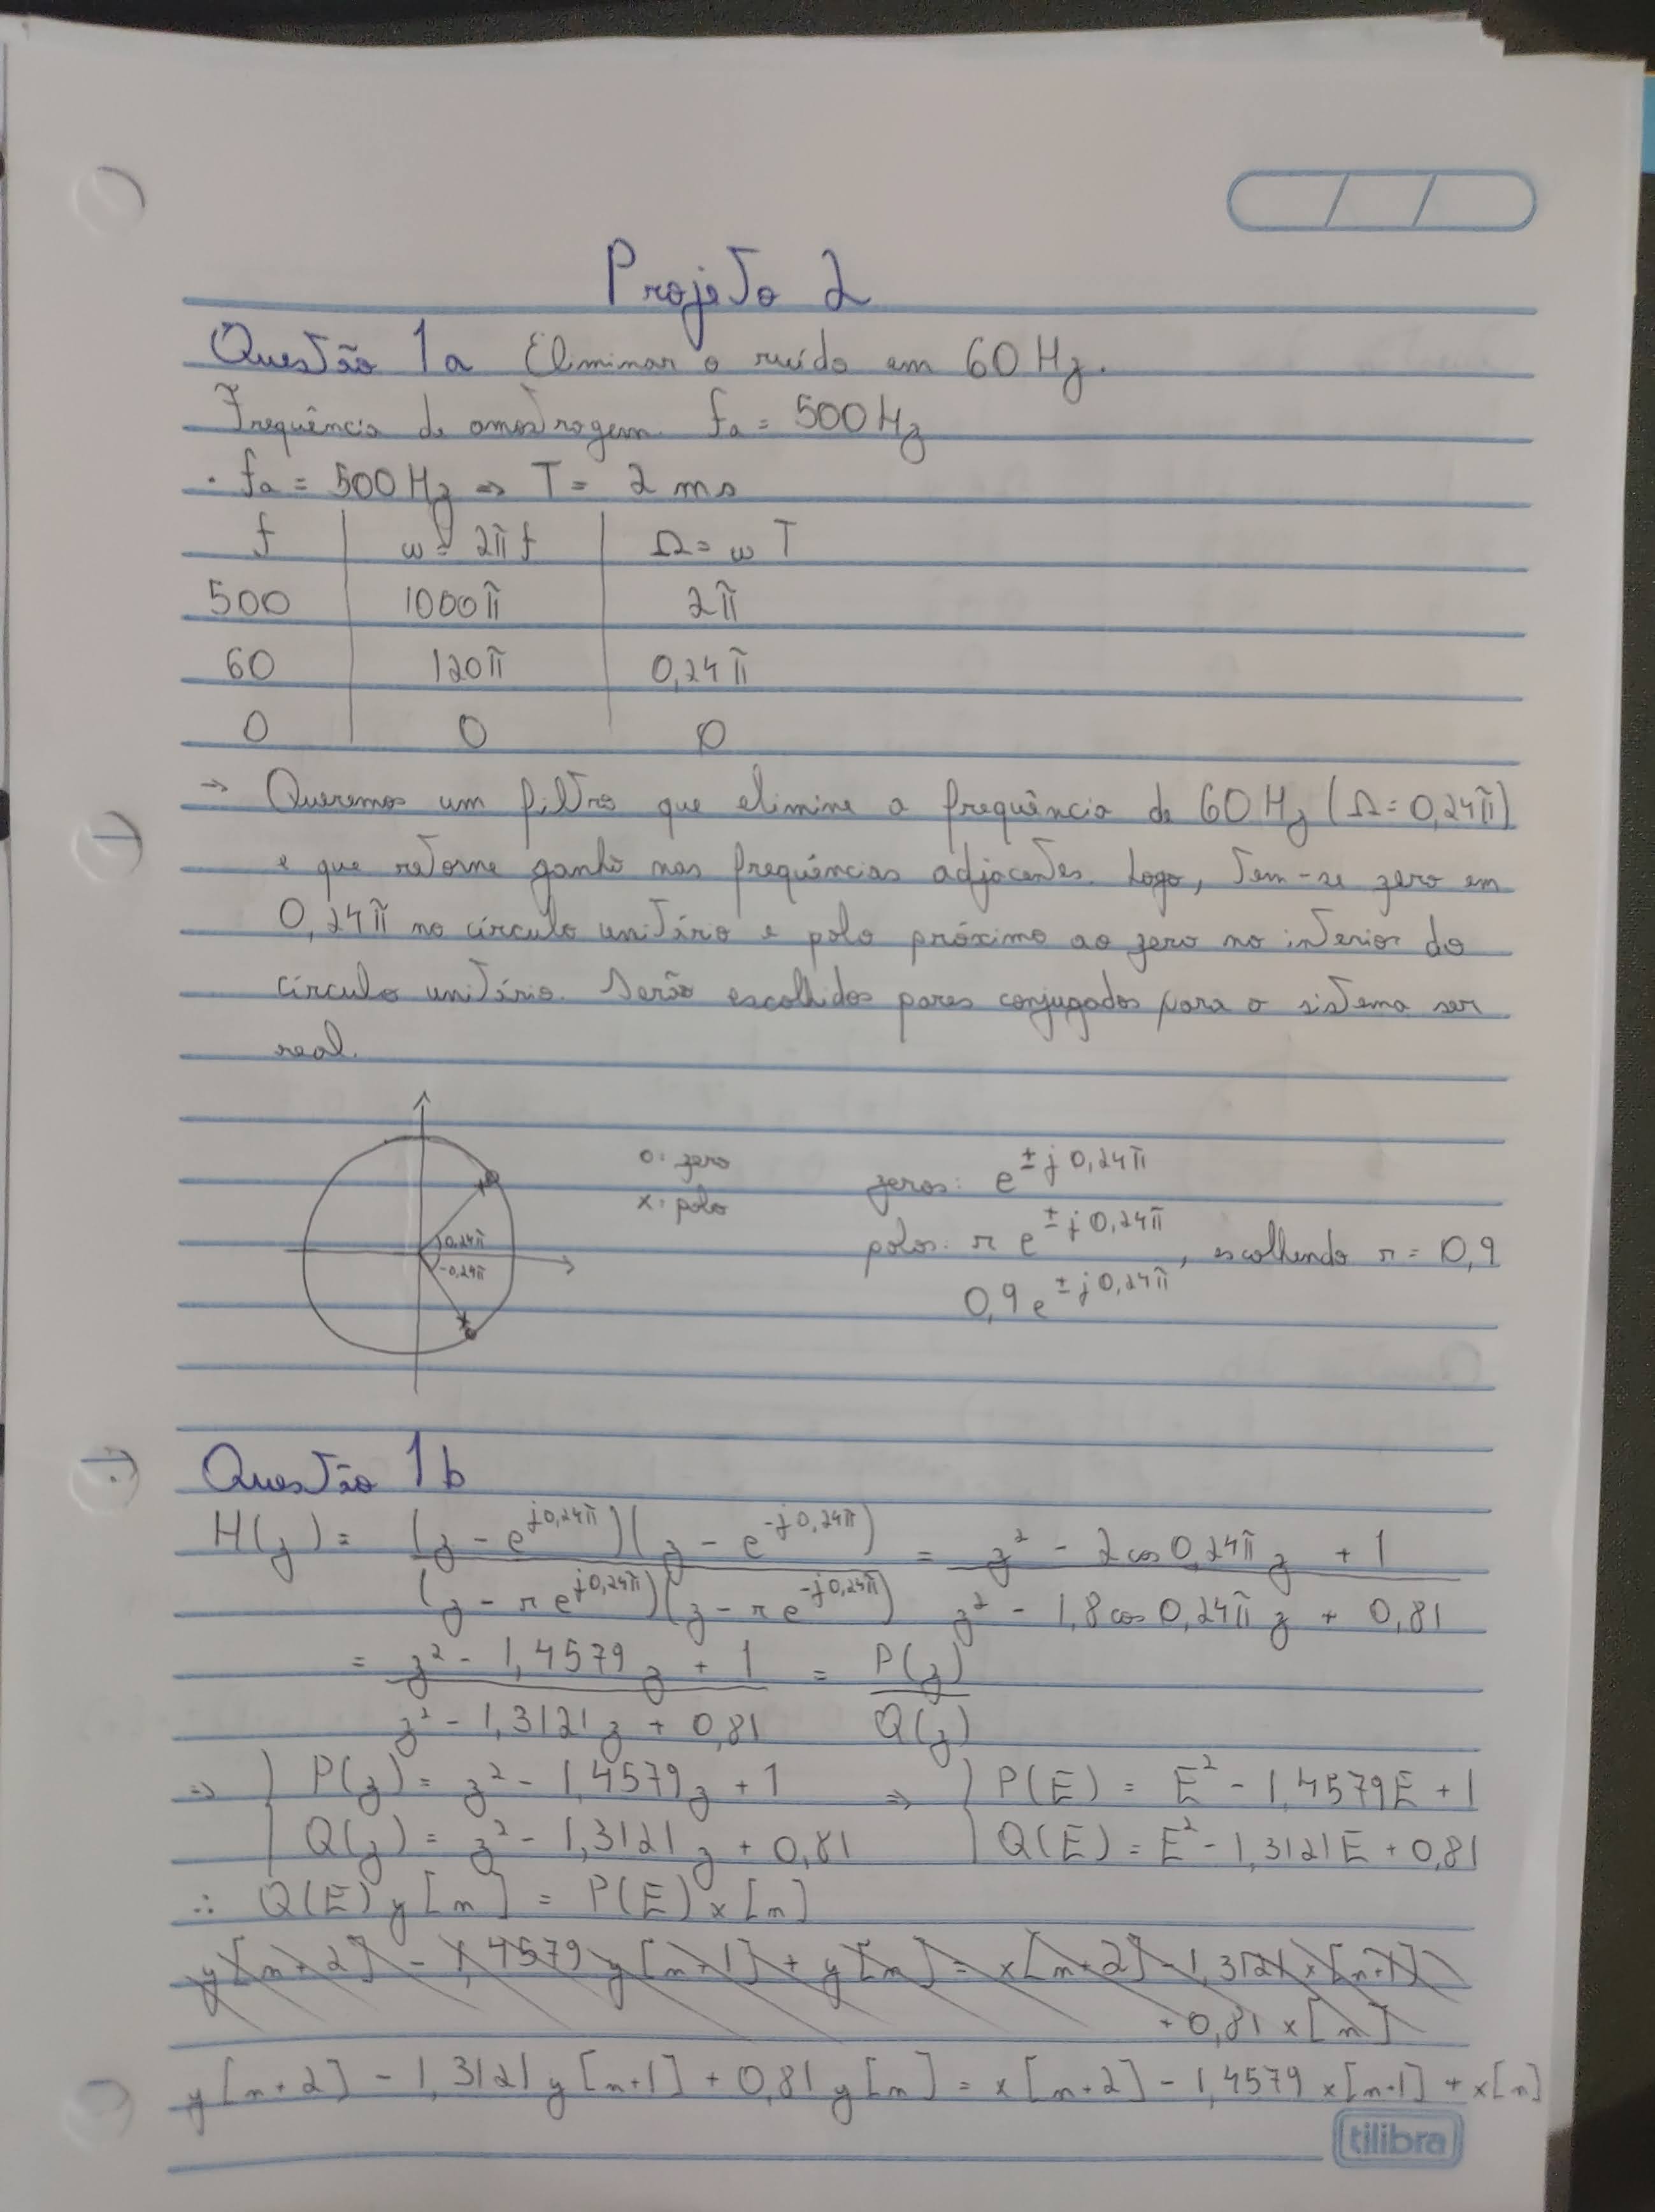 Projeto 2
Questão 1a Eliminar o ruído em 60 Hz.
Frequência de amostragem. fa = 500 Hz
· fa = 500 Hz ⇒ T = 2 ms
f | ω = 2πf | Ω = ωT
500 | 1000π | 2π
60 | 120π | 0,24π
0 | 0 | 0
→ Queremos um filtro que elimine a frequência de 60 Hz (Ω = 0,24π)
e que retorne ganho nas frequências adjacentes. Logo, tem-se zero em
0,24π no círculo unitário e polo próximo ao zero no interior do
círculo unitário. Serão escolhidos pares conjugados para o sistema ser
real.
o: zero
x: polo
0,24π
-0,24π
zeros: e^{±j0,24π}
polos: r e^{±j0,24π}, escolhendo r = 0,9
0,9 e^{±j0,24π}
Questão 1b
H(z) = (z - e^{j0,24π})(z - e^{-j0,24π}) / (z - r e^{j0,24π})(z - r e^{-j0,24π}) = z² - 2 cos 0,24π z + 1 / z² - 1,8 cos 0,24π z + 0,81
= z² - 1,4579 z + 1 / z² - 1,3121 z + 0,81 = P(z) / Q(z)
⇒ { P(z) = z² - 1,4579 z + 1 ⇒ { P(E) = E² - 1,4579E + 1
{ Q(z) = z² - 1,3121 z + 0,81 { Q(E) = E² - 1,3121E + 0,81
∴ Q(E) y[n] = P(E) x[n]
y[n+2] - 1,4579 y[n+1] + y[n] = x[n+2] - 1,3121 x[n+1]
+ 0,81 x[n]
y[n+2] - 1,3121 y[n+1] + 0,81 y[n] = x[n+2] - 1,4579 x[n+1] + x[n]
tilibra